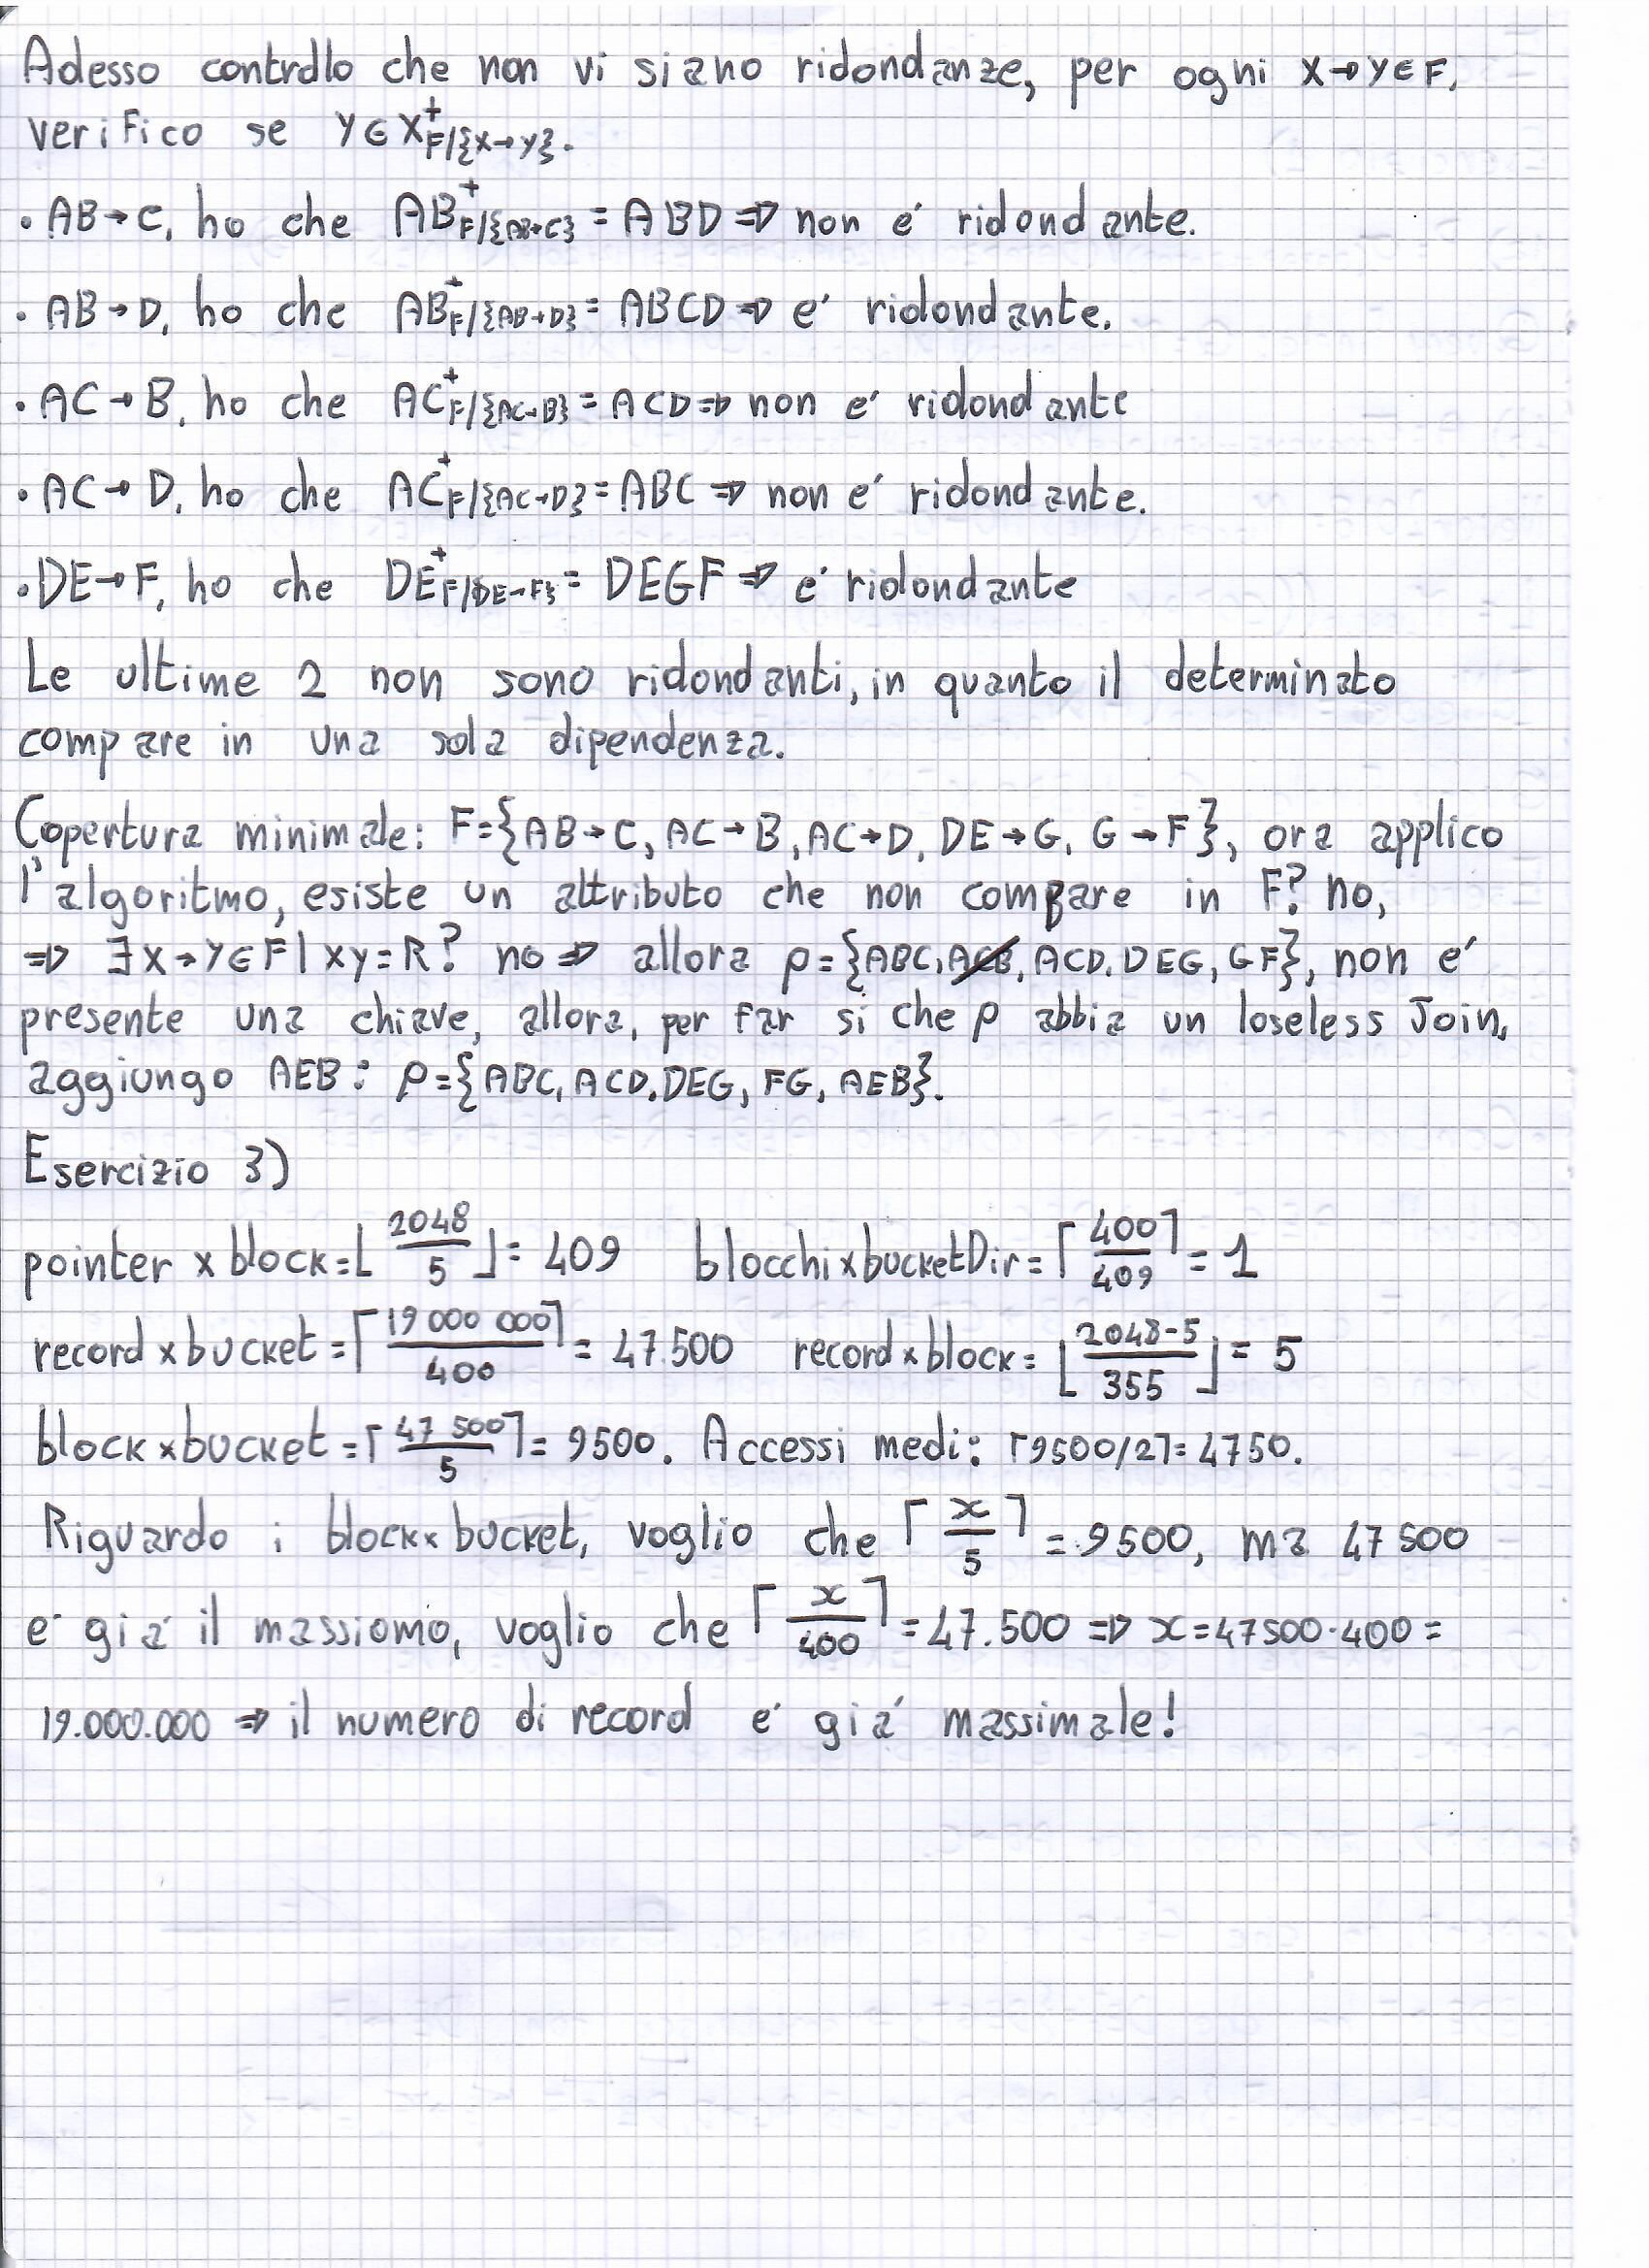 Adesso controllo che non vi siano ridondanze, per ogni X→Y∈F,
verifico se Y∈X⁺F/{X→Y}.
• AB→C, ho che AB⁺F/{AB→C} = ABD ⇒ non e' ridondante.
• AB→D, ho che AB⁺F/{AB→D} = ABCD ⇒ e' ridondante.
• AC→B, ho che AC⁺F/{AC→B} = ACD ⇒ non e' ridondante
• AC→D, ho che AC⁺F/{AC→D} = ABC ⇒ non e' ridondante.
• DE→F, ho che DE⁺F/{DE→F} = DEGF ⇒ e' ridondante
Le ultime 2 non sono ridondanti, in quanto il determinato
compare in una sola dipendenza.
Copertura minimale: F={AB→C, AC→B, AC→D, DE→G, G→F}, ora applico
l'algoritmo, esiste un attributo che non compare in F? no,
⇒ ∃X→Y∈F | XY=R? no ⇒ allora ρ={ABC, ACB, ACD, DEG, GF}, non e'
presente una chiave, allora, per far si che ρ abbia un loseless Join,
aggiungo AEB: ρ={ABC, ACD, DEG, FG, AEB}.
Esercizio 3)
pointer x block = ⌊2048/5⌋ = 409 blocchi x bucketDir = ⌈400/409⌉ = 1
record x bucket = ⌈19 000 000/400⌉ = 47.500 record x block = ⌊2048-5/355⌋ = 5
block x bucket = ⌈47 500/5⌉ = 9500. Accessi medi: ⌈9500/2⌉ = 4750.
Riguardo i block x bucket, voglio che ⌈x/5⌉ = 9500, ma 47 500
e' gia' il massiomo, voglio che ⌈x/400⌉ = 47.500 ⇒ x = 47500·400 =
19.000.000 ⇒ il numero di record e' gia' massimale!